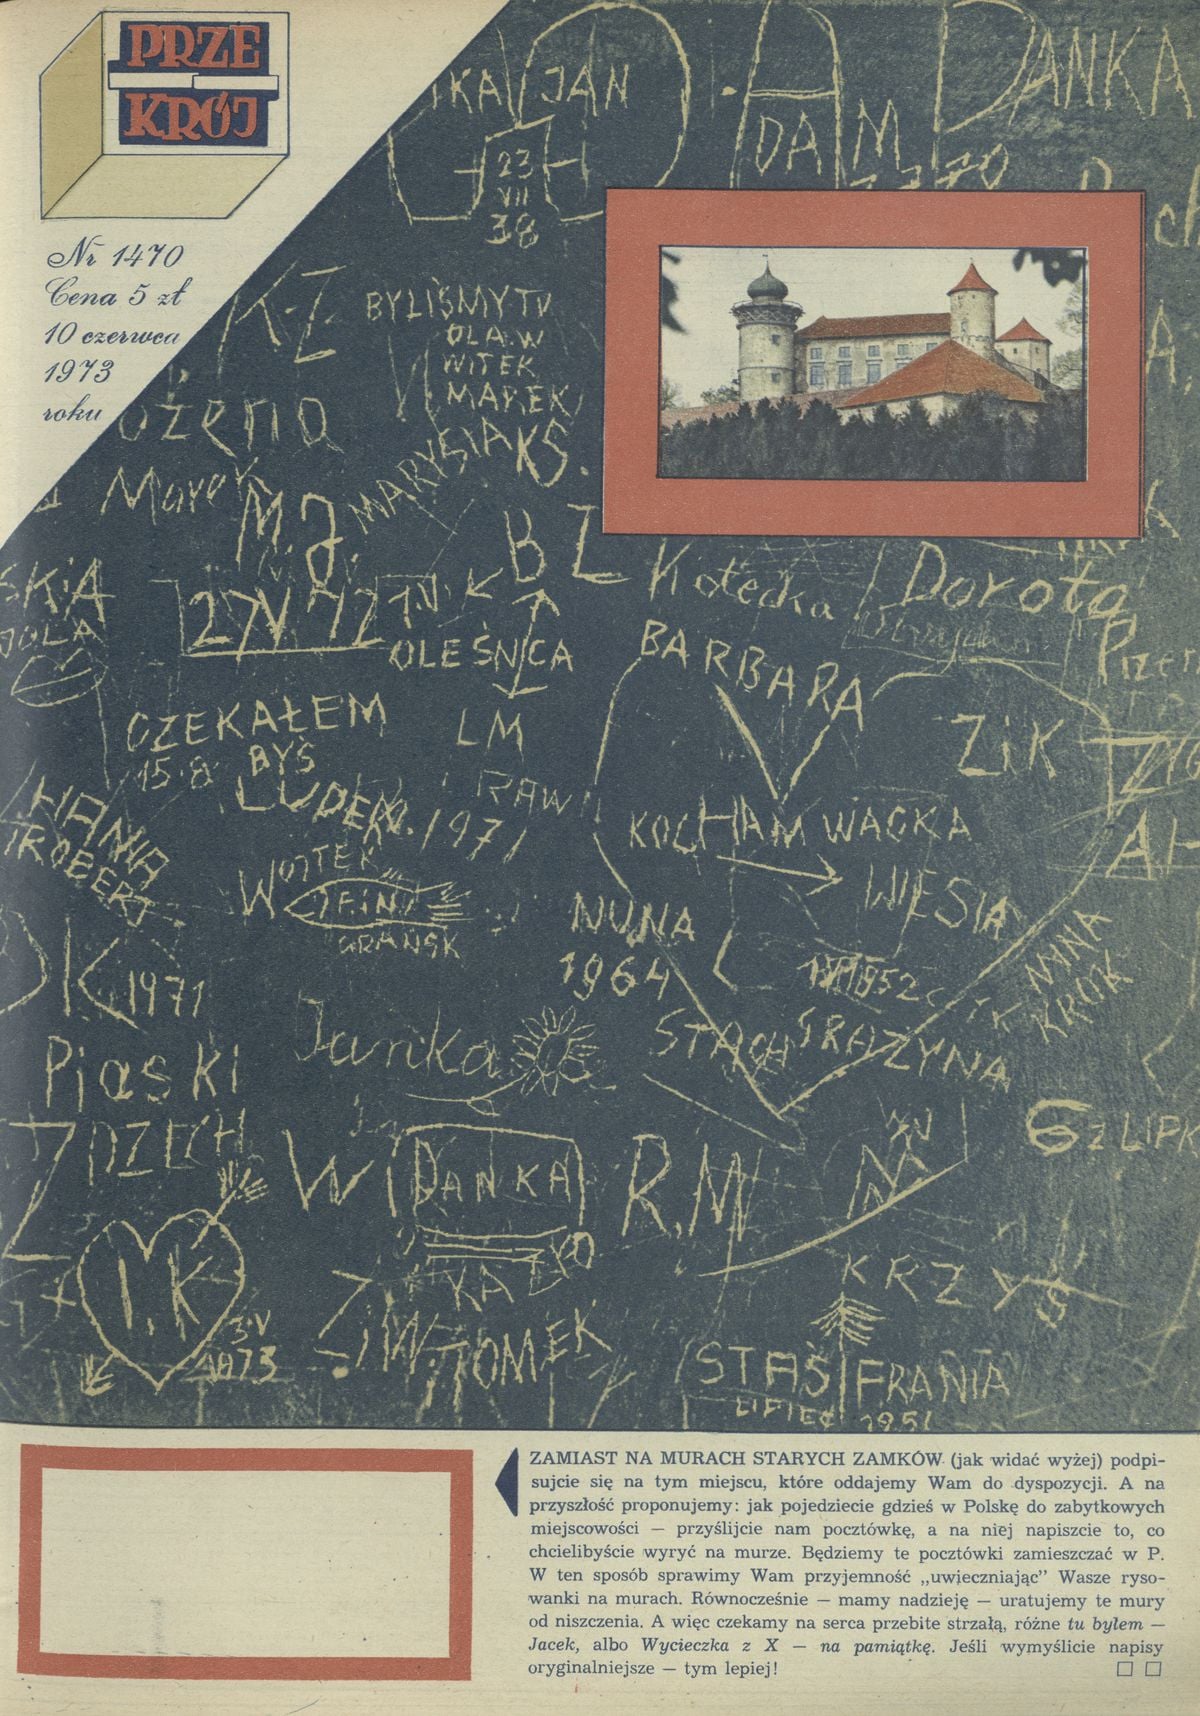 PRZE
KRÓJ
Nr 1470
Cena 5 zł
10 czerwca
1973
roku
JAN
DANKA
ADAM
23
VII
38
K.Z.
BYLIŚMY TU
OLA.W
WITEK
MAREK
MARYSIA KS.
Marek
M.J.
B Z
Kotecka
Dorota
SKA
JOLA
OLEŚNICA
BARBARA
CZEKAŁEM
15.8
BYŚ
LM
ZiK
LUDEK
197
HANIA
ROBERT
KOCHAM WACKA
WIESIA
WOJTEK
GDAŃSK
NUNA
1964
1952
NINA
KROK
DK 1971
Janka
STACH GRAŻYNA
Piaski
W
DANKA
R.M
I.K
3 V
1973
KRZYŚ
Z.W.
TOMEK
STAŚ FRANIA
LIPIEC 1951
ZAMIAST NA MURACH STARYCH ZAMKÓW (jak widać wyżej) podpi-
sujcie się na tym miejscu, które oddajemy Wam do dyspozycji. A na
przyszłość proponujemy: jak pojedziecie gdzieś w Polskę do zabytkowych
miejscowości — przyślijcie nam pocztówkę, a na niej napiszcie to, co
chcielibyście wyryć na murze. Będziemy te pocztówki zamieszczać w P.
W ten sposób sprawimy Wam przyjemność „uwieczniając” Wasze ryso-
wanki na murach. Równocześnie — mamy nadzieję — uratujemy te mury
od niszczenia. A więc czekamy na serca przebite strzałą, różne tu byłem —
Jacek, albo Wycieczka z X — na pamiątkę. Jeśli wymyślicie napisy
oryginalniejsze — tym lepiej!